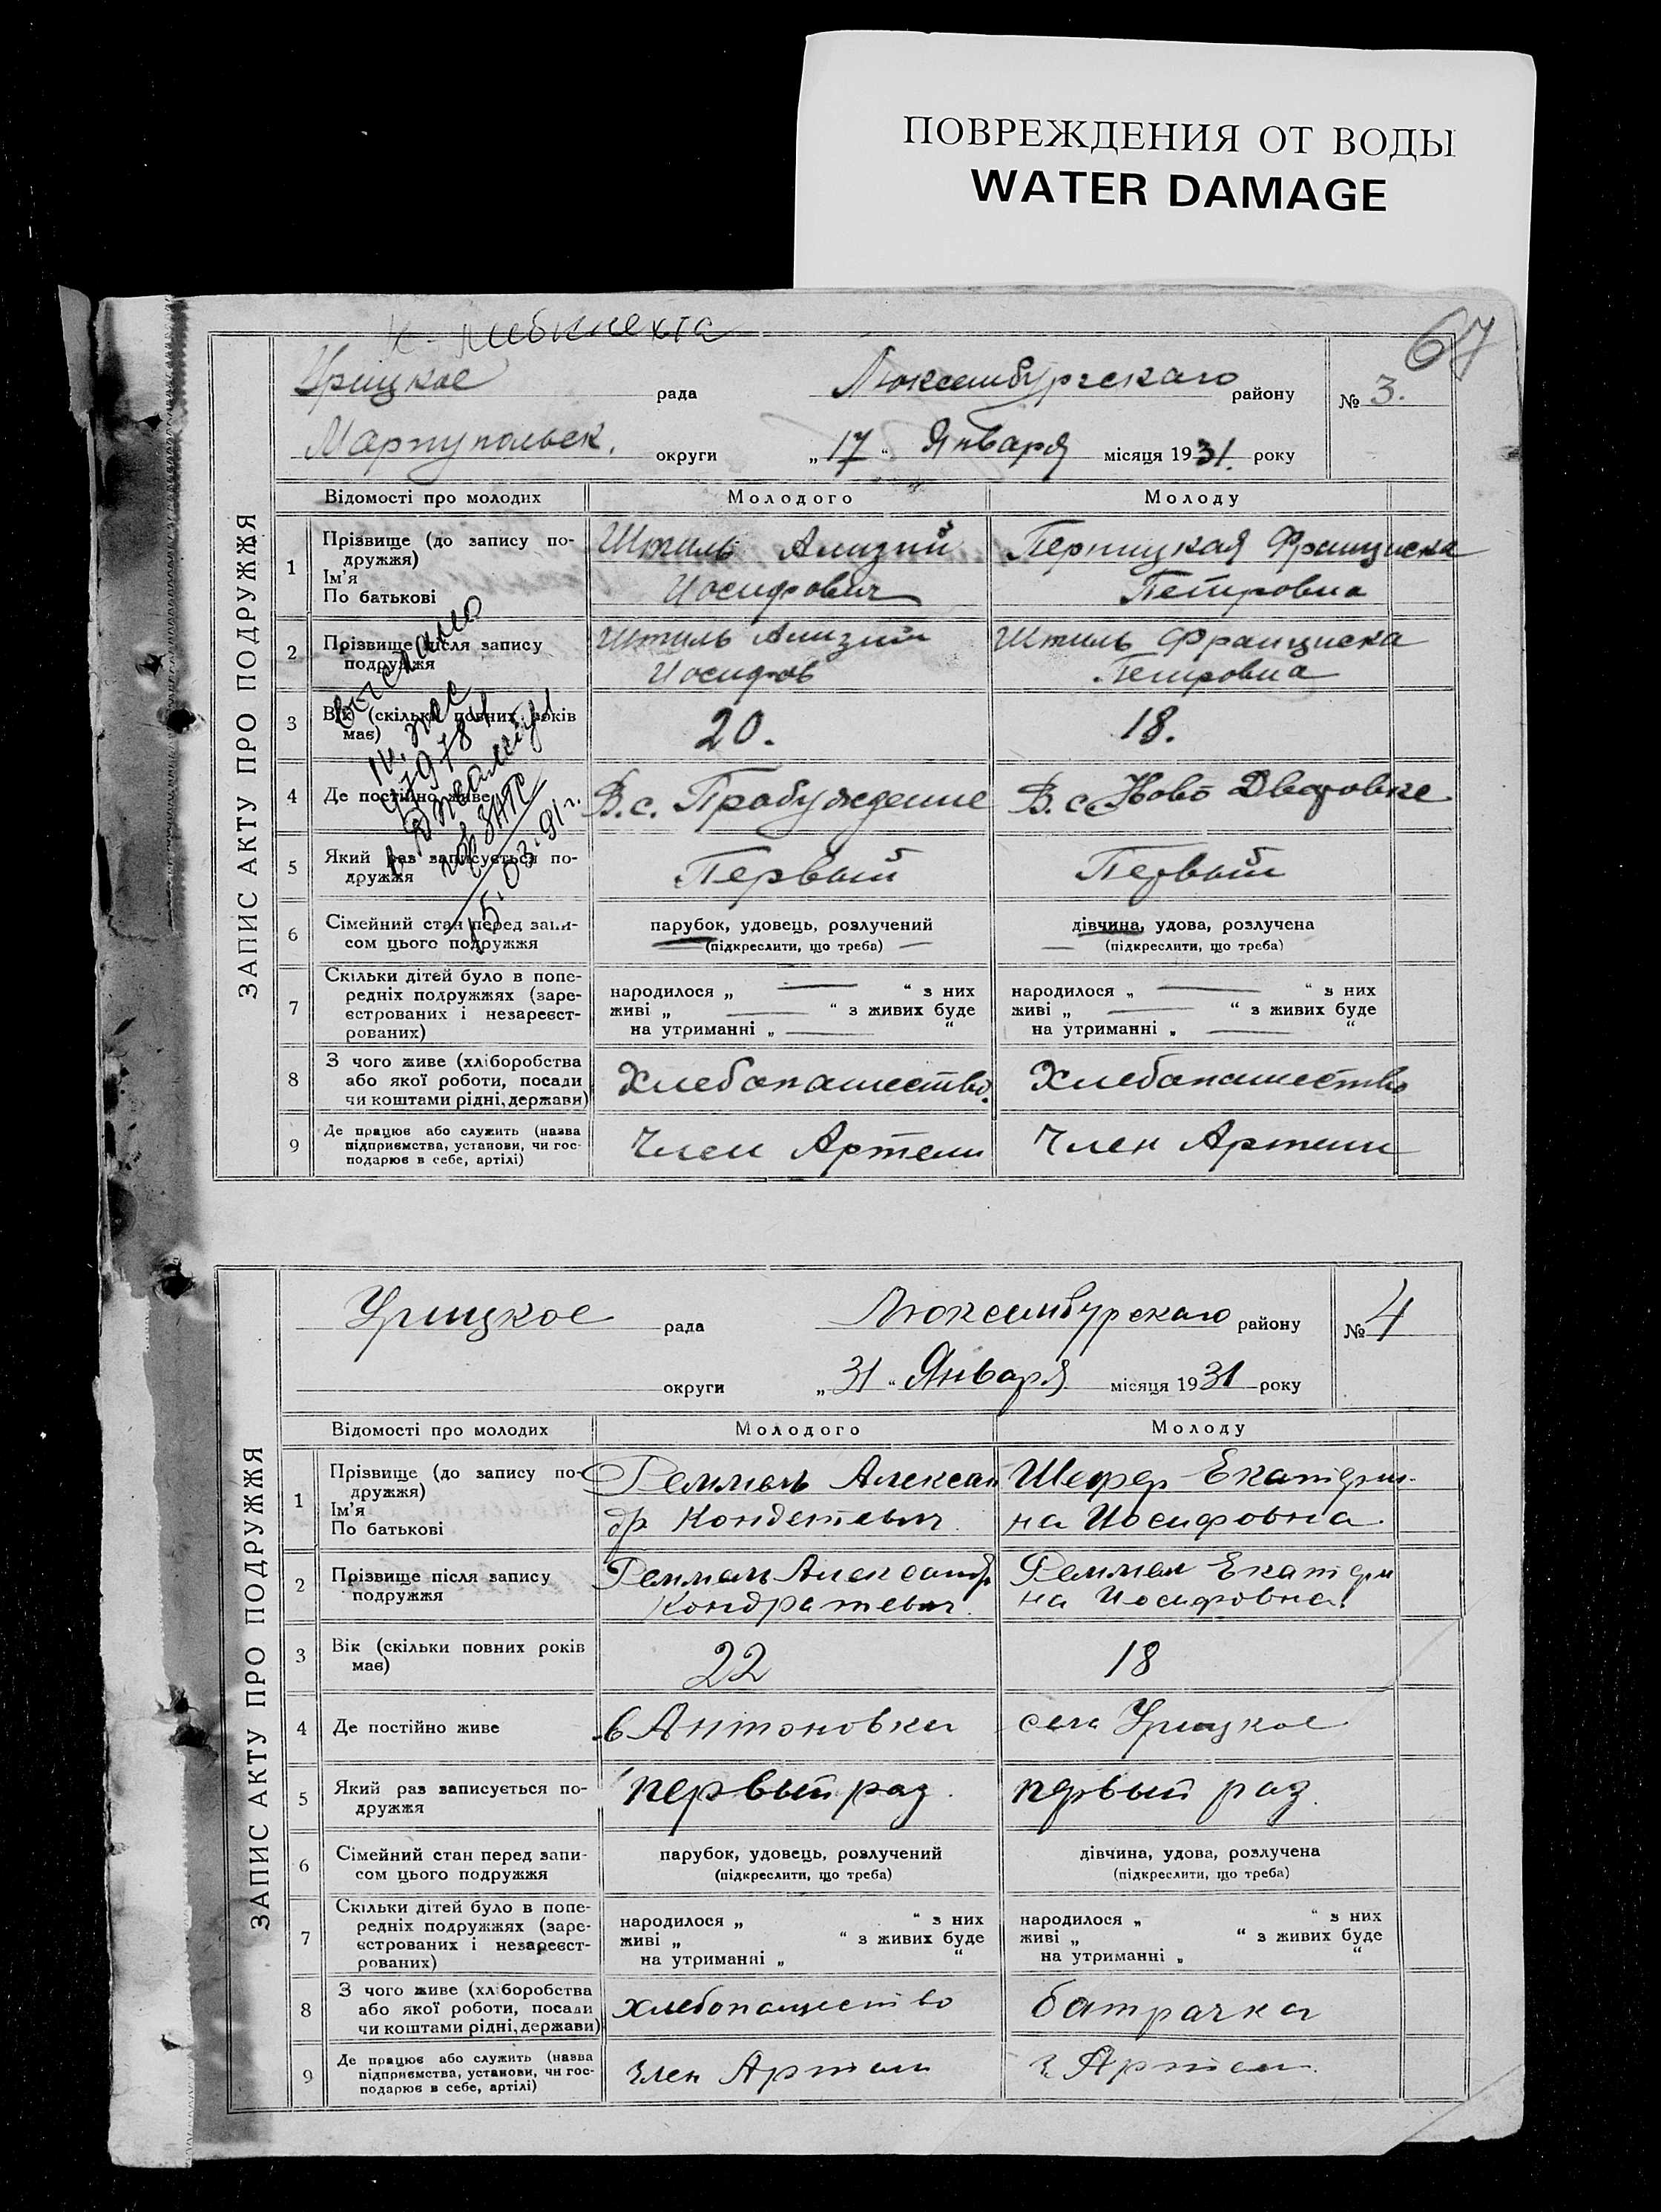 ПОВРЕЖДЕНИЯ ОТ ВОДЫ
WATER DAMAGE
67
Урицкое рада Люксембургскаго району № 3.
Мариупольск. округи „17“ Января місяця 1931. року
ЗАПИС АКТУ ПРО ПОДРУЖЖЯ
Відомості про молодих Молодого Молоду
1 Прізвище (до запису по-
дружжя)
Ім’я
По батькові
Штиль Ализий
Иосифович
Перницкая Франциска
Петровна
2 Прізвище після запису
подружжя
Штиль Ализий
Иосифов
Штиль Франциска
Петровна
3 Вік (скільки повних років
має)
20. 18.
4 Де постійно живе
В.с. Пробуждение В. с. Ново Дворовке
5 Який раз записується по-
дружжя
Первый Первый
6 Сімейний стан перед запи-
сом цього подружжя
парубок, удовець, розлучений
(підкреслити, що треба)
дівчина, удова, розлучена
(підкреслити, що треба)
7 Скільки дітей було в попе-
редніх подружжях (заре-
єстрованих і незареєст-
рованих)
народилося „ “ з них
живі „ “ з живих буде
на утриманні „ “
народилося „ “ з них
живі „ “ з живих буде
на утриманні „ “
8 З чого живе (хліборобства
або якої роботи, посади
чи коштами рідні, держави)
Хлебопашество. Хлебопашество
9 Де працює або служить (назва
підприємства, установи, чи гос-
подарює в себе, артілі)
Член Артели Член Артели
выслано
97978
ЗАГС
15.03.91г.
Урицкое рада Люксембурскаго району № 4
округи „31“ Января місяця 1931 року
ЗАПИС АКТУ ПРО ПОДРУЖЖЯ
Відомості про молодих Молодого Молоду
1 Прізвище (до запису по-
дружжя)
Ім’я
По батькові
Реммель Алексан
др Кондетевич
Шефер Екатери-
на Иосифовна
2 Прізвище після запису
подружжя
Реммель Александр
Кондратевич
Реммел Екатери
на Иосифовна
3 Вік (скільки повних років
має)
22 18
4 Де постійно живе
в Антоновки село Урицкое
5 Який раз записується по-
дружжя
первый раз. первый раз.
6 Сімейний стан перед запи-
сом цього подружжя
парубок, удовець, розлучений
(підкреслити, що треба)
дівчина, удова, розлучена
(підкреслити, що треба)
7 Скільки дітей було в попе-
редніх подружжях (заре-
єстрованих і незареєст-
рованих)
народилося „ “ з них
живі „ “ з живих буде
на утриманні „ “
народилося „ “ з них
живі „ “ з живих буде
на утриманні „ “
8 З чого живе (хліборобства
або якої роботи, посади
чи коштами рідні, держави)
хлебопашество батрачка
9 Де працює або служить (назва
підприємства, установи, чи гос-
подарює в себе, артілі)
член Артели ч. Артели